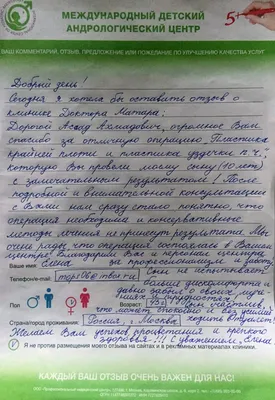 МЕЖДУНАРОДНЫЙ ДЕТСКИЙ
АНДРОЛОГИЧЕСКИЙ ЦЕНТР
5+
ВАШ КОММЕНТАРИЙ, ОТЗЫВ, ПРЕДЛОЖЕНИЕ ИЛИ ПОЖЕЛАНИЕ ПО УЛУЧШЕНИЮ КАЧЕСТВА УСЛУГ
Добрый день!
Сегодня я хотела бы оставить отзыв о
клинике Доктора Матара:
Дорогой Асаад Ахмадович, огромное Вам
спасибо за отличную операцию "Пластика
крайней плоти и пластика уздечки п.ч.",
которую Вы провели моему сыну (10 лет)
с замечательным результатом! После
подробной и внимательной консультации
с Вами нам сразу стало понятно, что
операция необходима и консервативные
методы лечения не принесут результата. Мы
очень рады что операция состоялась в Вашем
центре! Благодарим Вас и персонал клиники
Ваше имя: Елена за профессионализм и работу
Телефон/e-mail: Сын не испытывает
больше дискомфорта и
давно забыл о своих
Пол
Возраст
что может спокойно и
Страна/город проживания: Россия, г. Москва ходить в туалет!
Желаем Вам дальнейшего процветания и крепкого
здоровья!!! С уважением, Елена
Я не против размещения моего отзыва на сайтах и в рекламных материалах клиники.
КАЖДЫЙ ВАШ ОТЗЫВ ОЧЕНЬ ВАЖЕН ДЛЯ НАС!